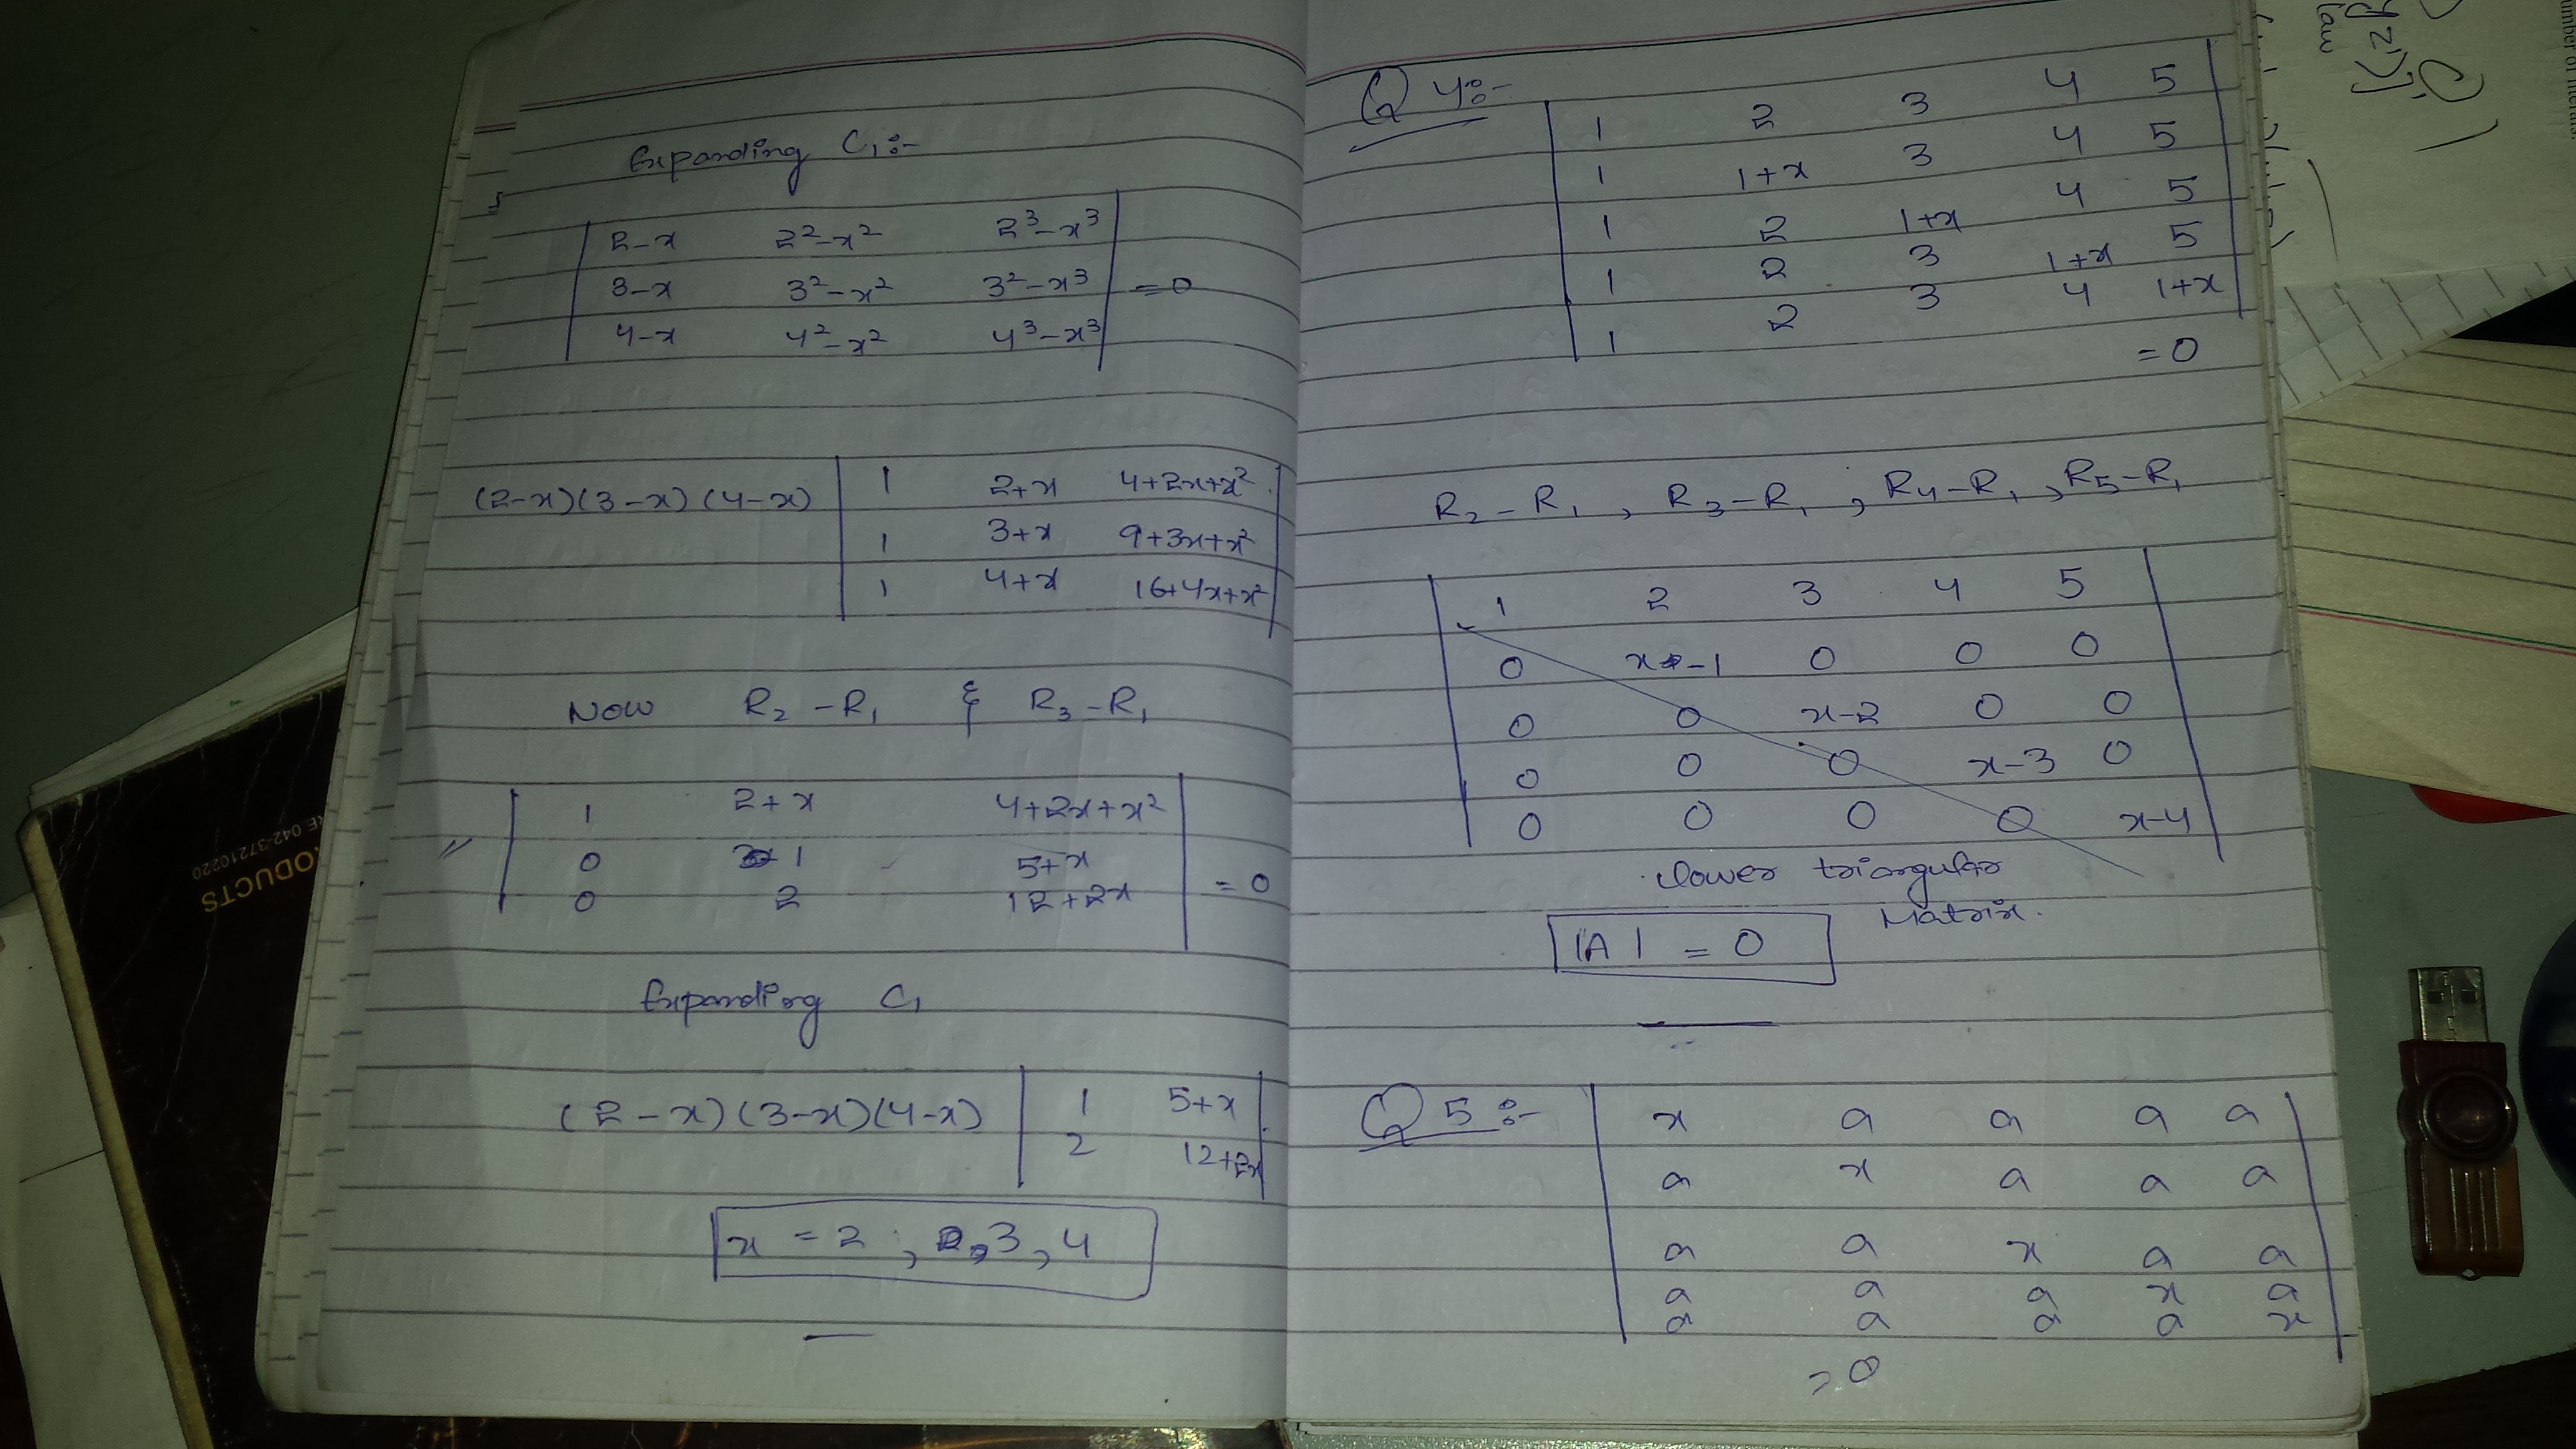 Expanding C₁:-
| 2-x 2²-x² 2³-x³ |
| 3-x 3²-x² 3²-x³ | =0
| 4-x 4²-x² 4³-x³ |
(2-x)(3-x)(4-x) | 1 2+x 4+2x+x² |
| 1 3+x 9+3x+x² |
| 1 4+x 16+4x+x² |
Now R₂-R₁ & R₃-R₁
| 1 2+x 4+2x+x² |
| 0 1 5+x |
| 0 2 12+2x | =0
Expanding C₁
(2-x)(3-x)(4-x) | 1 5+x |
| 2 12+2x |
x = 2, 3, 4
Q 4:-
| 1 2 3 4 5 |
| 1 1+x 3 4 5 |
| 1 2 1+x 4 5 |
| 1 2 3 1+x 5 |
| 1 2 3 4 1+x |
=0
R₂-R₁, R₃-R₁, R₄-R₁, R₅-R₁
| 1 2 3 4 5 |
| 0 x-1 0 0 0 |
| 0 0 x-2 0 0 |
| 0 0 0 x-3 0 |
| 0 0 0 0 x-4 |
lower triangular
Matrix.
|A| = 0
Q 5:-
| x a a a a |
| a x a a a |
| a a x a a |
| a a a x a |
| a a a a x |
=0
ODUCTS
042-37210220